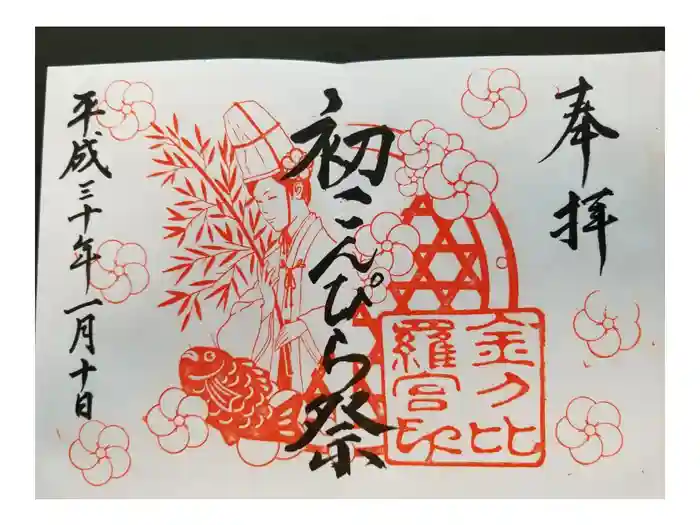 奉拝
初こんぴら祭
金刀比
羅宮印
平成三十年一月十日